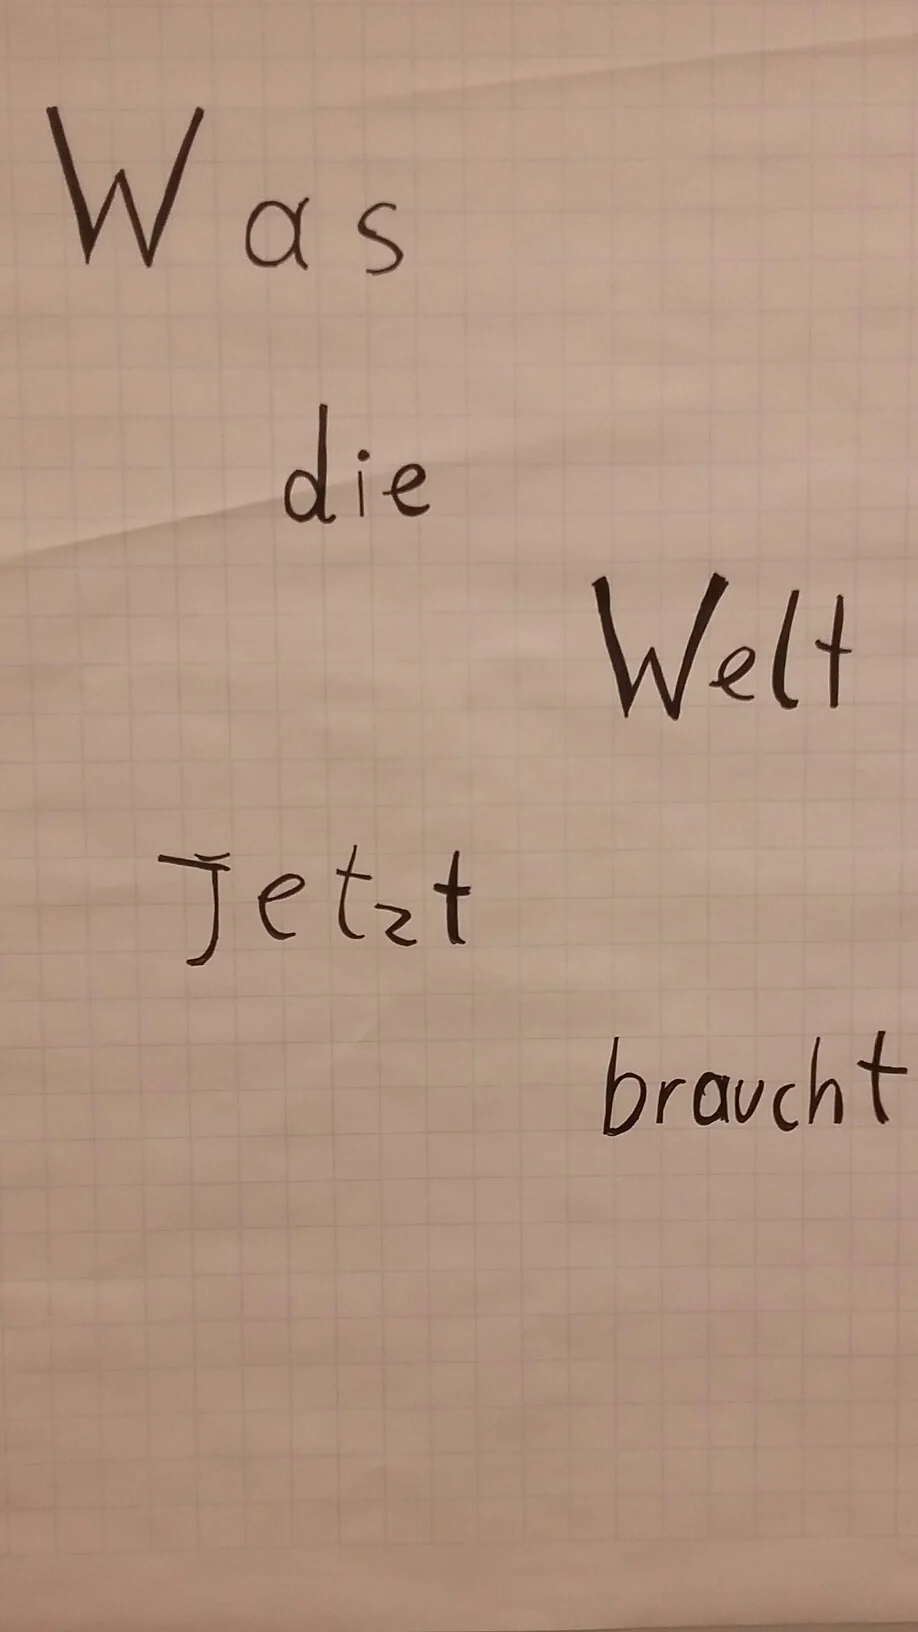 Was
die
Welt
Jetzt
braucht